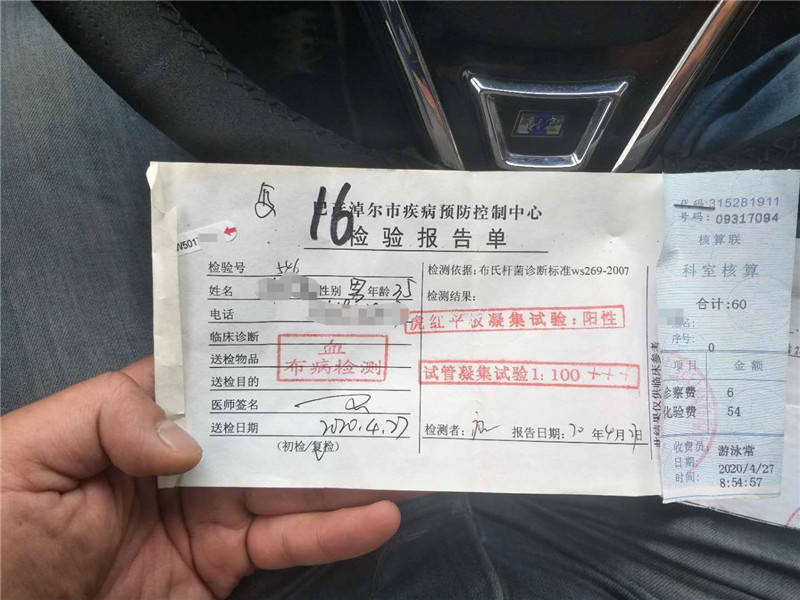 16
巴彦淖尔市疾病预防控制中心
检验报告单
W501
检验号 546
姓名 性别 男 年龄 35
电话
临床诊断
送检物品 血
送检目的 布病检测
医师签名
送检日期 2020.4.27
(初检/复检)
检测依据:布氏杆菌诊断标准ws269-2007
检测结果:
虎红平板凝集试验:阳性
试管凝集试验1:100 +++
检测者: 报告日期:20 年4月 日
此结果仅供临床参考
代码:315281911
号码:09317094
核算联
科室核算
合计:60
姓名:
序号: 0
项目 金额
诊察费 6
化验费 54
收费员: 游泳常
日期: 2020/4/27
时间: 8:54:57